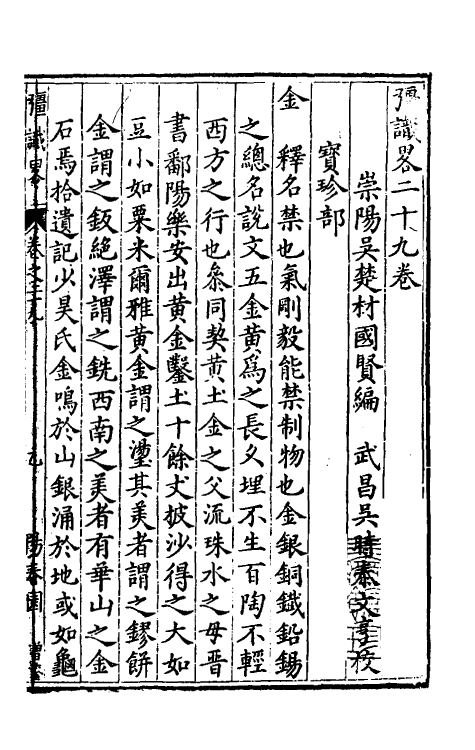 彊識畧二十九卷
崇陽吳楚材國賢編　武昌吳時泰文臺校
寶珍部
金　釋名禁也氣剛毅能禁制物也金銀銅鐵鉛錫
之總名說文五金黃爲之長久埋不生百陶不輕
西方之行也叅同契黃土金之父流珠水之母晋
書鄱陽樂安出黃金鑿土十餘丈披沙得之大如
豆小如粟米爾雅黃金謂之璗其美者謂之鏐餅
金謂之鈑絶澤謂之銑西南之美者有華山之金
石焉拾遺記少昊氏金鳴於山銀涌於地或如龜
彊識畧　卷之二十九　陽春園